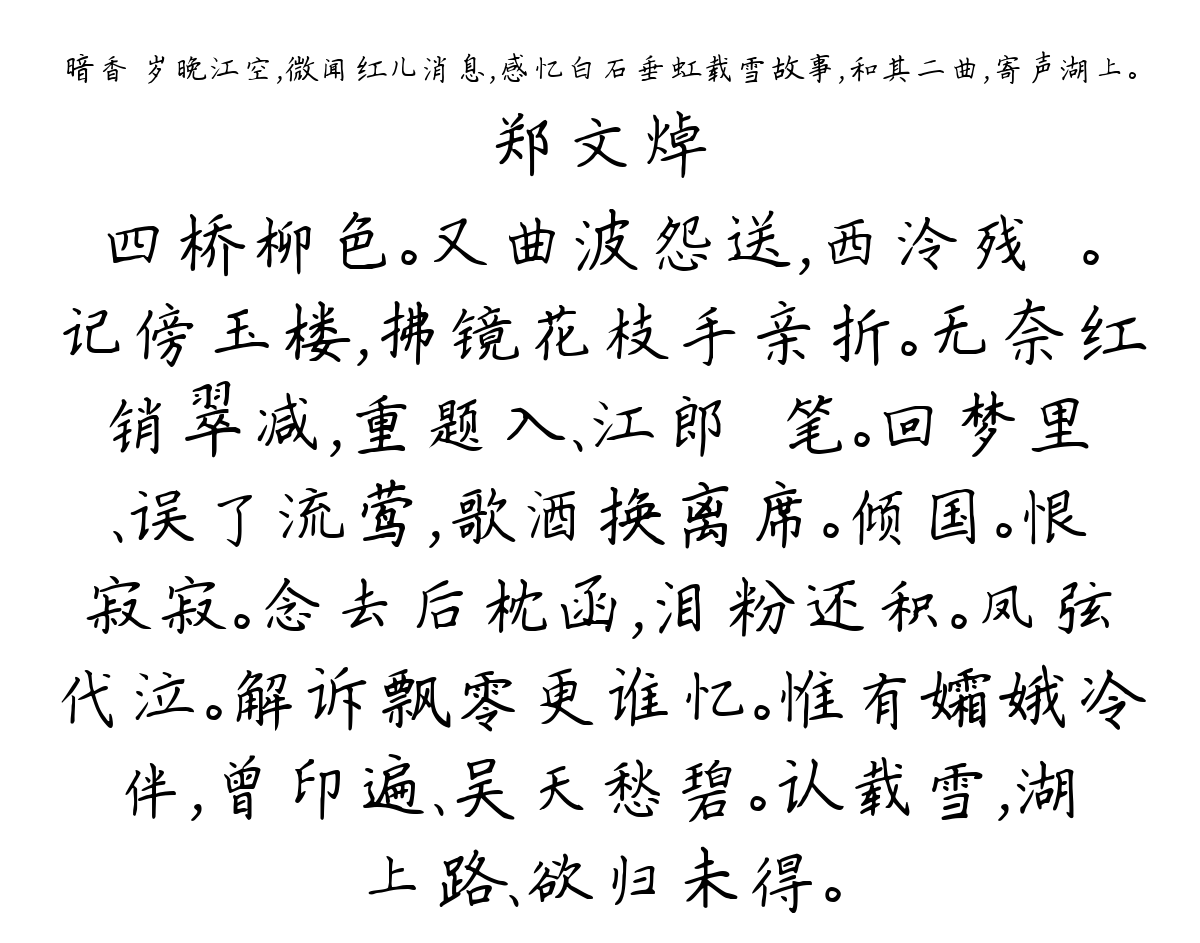 暗香 岁晚江空,微闻红儿消息,感忆白石垂虹载雪故事,和其二曲,寄声湖上。
郑文焯
四桥柳色。又曲波怨送,西泠残 。
记傍玉楼,拂镜花枝手亲折。无奈红
销翠减,重题入、江郎 笔。回梦里
、误了流莺,歌酒换离席。倾国。恨
寂寂。念去后枕函,泪粉还积。凤弦
代泣。解诉飘零更谁忆。惟有孀娥冷
伴,曾印遍、吴天愁碧。认载雪,湖
上路、欲归未得。